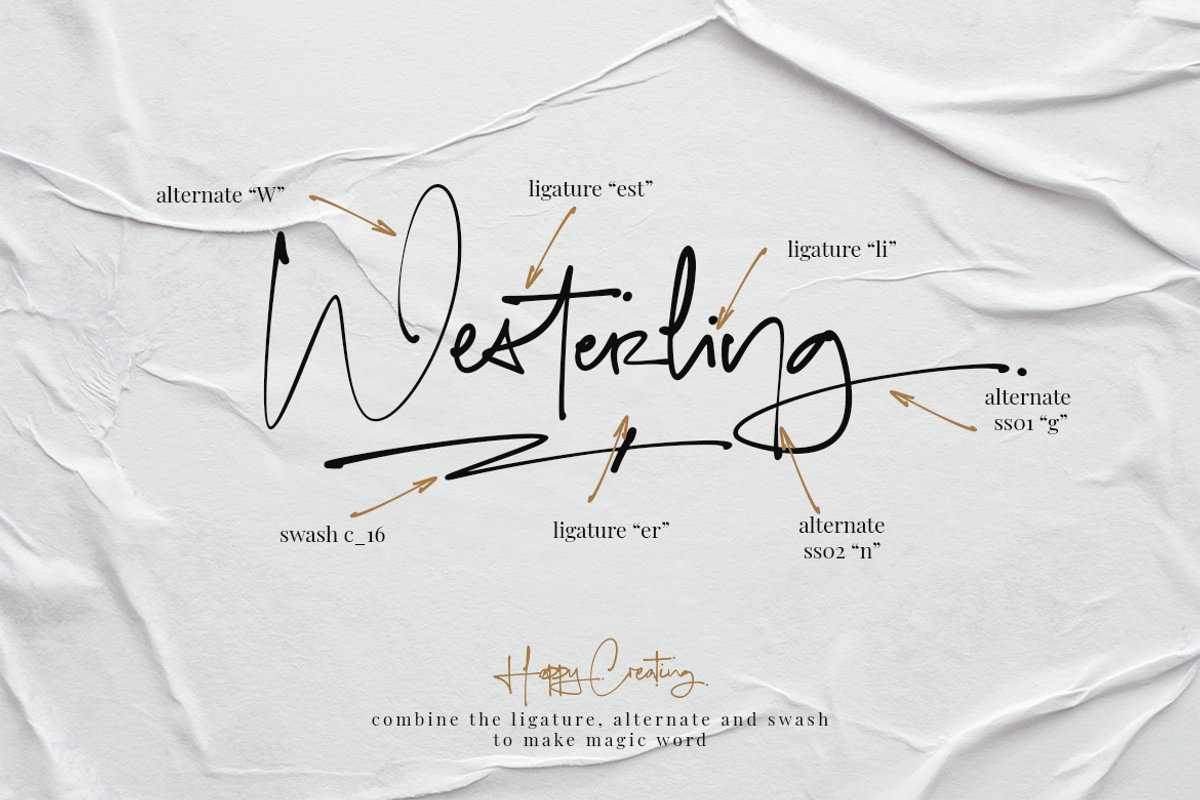 alternate “W”
ligature “est”
ligature “li”
Westerling
alternate
ss01 “g”
swash c_16
ligature “er”
alternate
ss02 “n”
Happy Creating
combine the ligature, alternate and swash
to make magic word